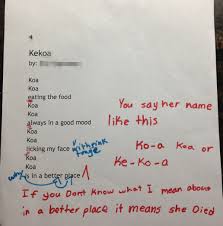 4
Kekoa
by:
Koa
Koa
eating the food
Koa
Koa
always in a good mood
Koa
Koa
licking my face
Koa
Koa
is in a better place
You say her name
like this
Ko-a Koa or
Ke-Ko-a
If you Dont know what I mean above
in a better place it means she Died